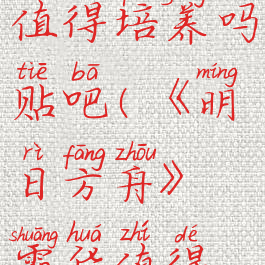 值得培养吗
tiē bā míng
贴吧(《明
rì fāng zhōu
日方舟》
shuāng huá zhí dé
霜华值得